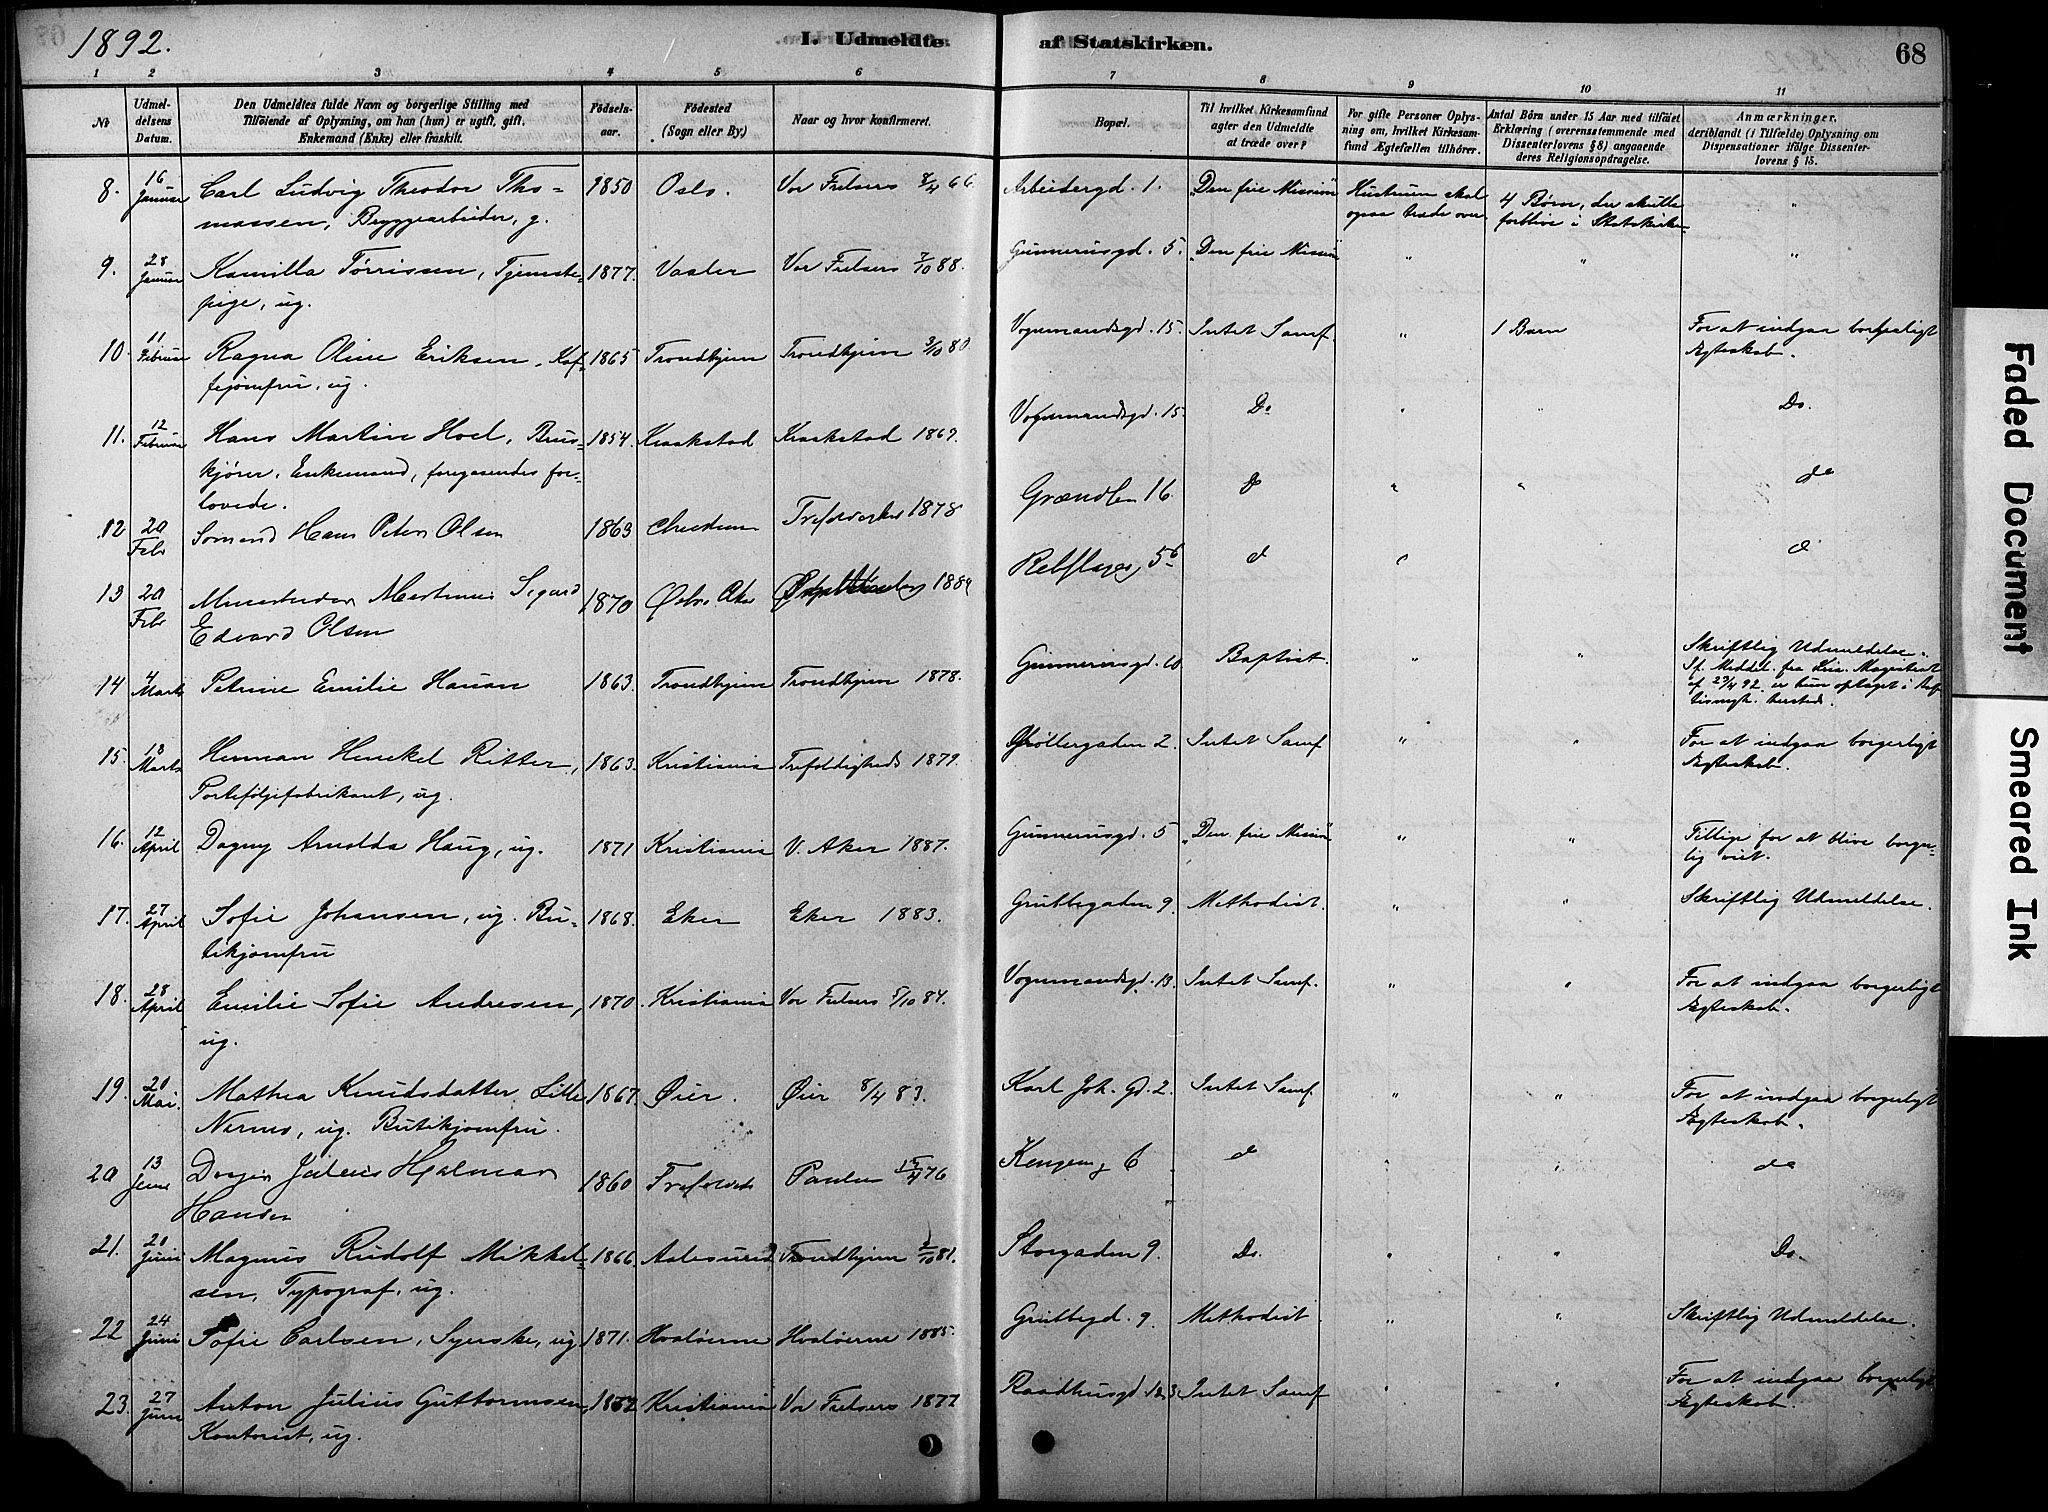 1892.
I. Udmeldte
af Statskirken.
68
1 2 3 4 5 6 7 8 9 10 11
No
Udmel-
delsens
Datum.
Den Udmeldtes fulde Navn og borgerlige Stilling med
Tilföiende af Oplysning, om han (hun) er ugift, gift,
Enkemand (Enke) eller fraskilt.
Födsels-
aar.
Födested
(Sogn eller By.)
Naar og hvor konfirmeret.
Bopæl.
Til hvilket Kirkesamfund
agter den Udmeldte
at træde over?
For gifte Personer Oplys-
ning om, hvilket Kirkesam-
fund Ægtefællen tilhörer.
Antal Börn under 15 Aar med tilföiet
Erklæring (overensstemmende med
Dissenterlovens § 8) angaaende
deres Religionsopdragelse.
Anmærkninger,
deriblandt (i Tilfælde) Oplysning om
Dispensationer ifölge Dissenter-
lovens § 15.
8. 16 Januar Carl Ludvig Theodor Tho- 1850 Oslo. Vor Frelsers 8/4 66 Arbeidergd. 1. "Den frie Mission" Hustruen skal 4 Børn, der skulle "
massen, Bryggearbeider, g. ogsaa træde over forblive i Statskirke-
9. 28 Januar Kamilla Tørrissen, Tjeneste- 1877. Vaaler Vor Frelsers 7/10 88. Gunnerusgd. 5. "Den frie Mission" " " "
pige, ug.
10. 11 Februar Ragna Oline Eriksen, Kaf- 1865 Trondhjem Trondhjem 3/10 80. Vognmandsgd. 15. Intet Samf. " 1 Barn For at indgaa borgerligt
fejomfru, ug. Ægteskab.
11. 12 Februar Hans Martin Hoel, Brus- 1854. Kraakstad Kraakstad 1869. Vognmandsgd. 15. Do " " Do.
kjører, Enkemand, foregaaendes for-
lovede.
12 20 Febr Sømand Hans Peter Olsen 1863 1878 16 do " " do
13 20 Febr Martinus Sigard 1870 Østre Aker 1884 Rebslager 5b d " d
Edvard Olsen
14 4 Marts Petrine Emilie Hauan 1863. Trondhjem Trondhjem 1878. Gunnerusgd. 10 Baptist. " " Skriftlig Udmeldelse.
If. Meddel. fra Kra. Magistrat
af 23/4 92. er hun optaget i Bap-
tismgh. hersteds.
15. 18 Marts Herman Henckel Ritter, 1863. Kristiania Trefoldigheds 1879. Møllergaden 2. Intet Samf " " For at indgaa borgerligt
Porteføljefabrikant, ug. Ægteskab.
16. 12 April Dagny Arnolda Haug, ug. 1871 Kristiania V. Aker 1887. Gunnerusgd. 5 "Den frie Mission" " " Tillige for at blive borger-
lig viet.
17. 27 April Sofie Johansen, ug. Bu- 1868. Eker Eker 1883. Grubbegaden 9. Methodist. " " Skriftlig Udmeldelse.
tikjomfru
18. 28 April Emilie Sofie Andresen, 1870. Kristiania Vor Frelsers 5/10 84. Vognmandsgd. 13. Intet Samf. " " For at indgaa borgerligt
ug. Ægteskab.
19. 20 Mai. Mathea Knudsdatter Lille 1867. Øier. Øier 8/4 83. Karl Joh. Gd. 2. Intet Samf. " " For at indgaa borgerligt
Nermo, ug. Butikjomfru. Ægteskab.
20 13 Juni Julius Hjalmar 1860 Paulus 76 6 d " " do
Hansen
21. 20 Juni Magnus Rudolf Mikkel- 1866. Aalesund Trondhjem 2/10 81. Storgaden 9. Do. " " Do.
sen, Typograf, ug.
22 24 Juni Sofie Carlsen, Syerske, ug 1871. Hvaløerne Hvaløerne 1885. Grubbegd. 9. Methodist. " " Skriftlig Udmeldelse.
23. 27 Juni Anton Julius Guttormsen, 1862. Kristiania Vor Frelsers 1877 Raadhusgd. Intet Samf " " For at indgaa borgerligt
Kontorist, ug. Ægteskab.
Faded Document
Smeared Ink